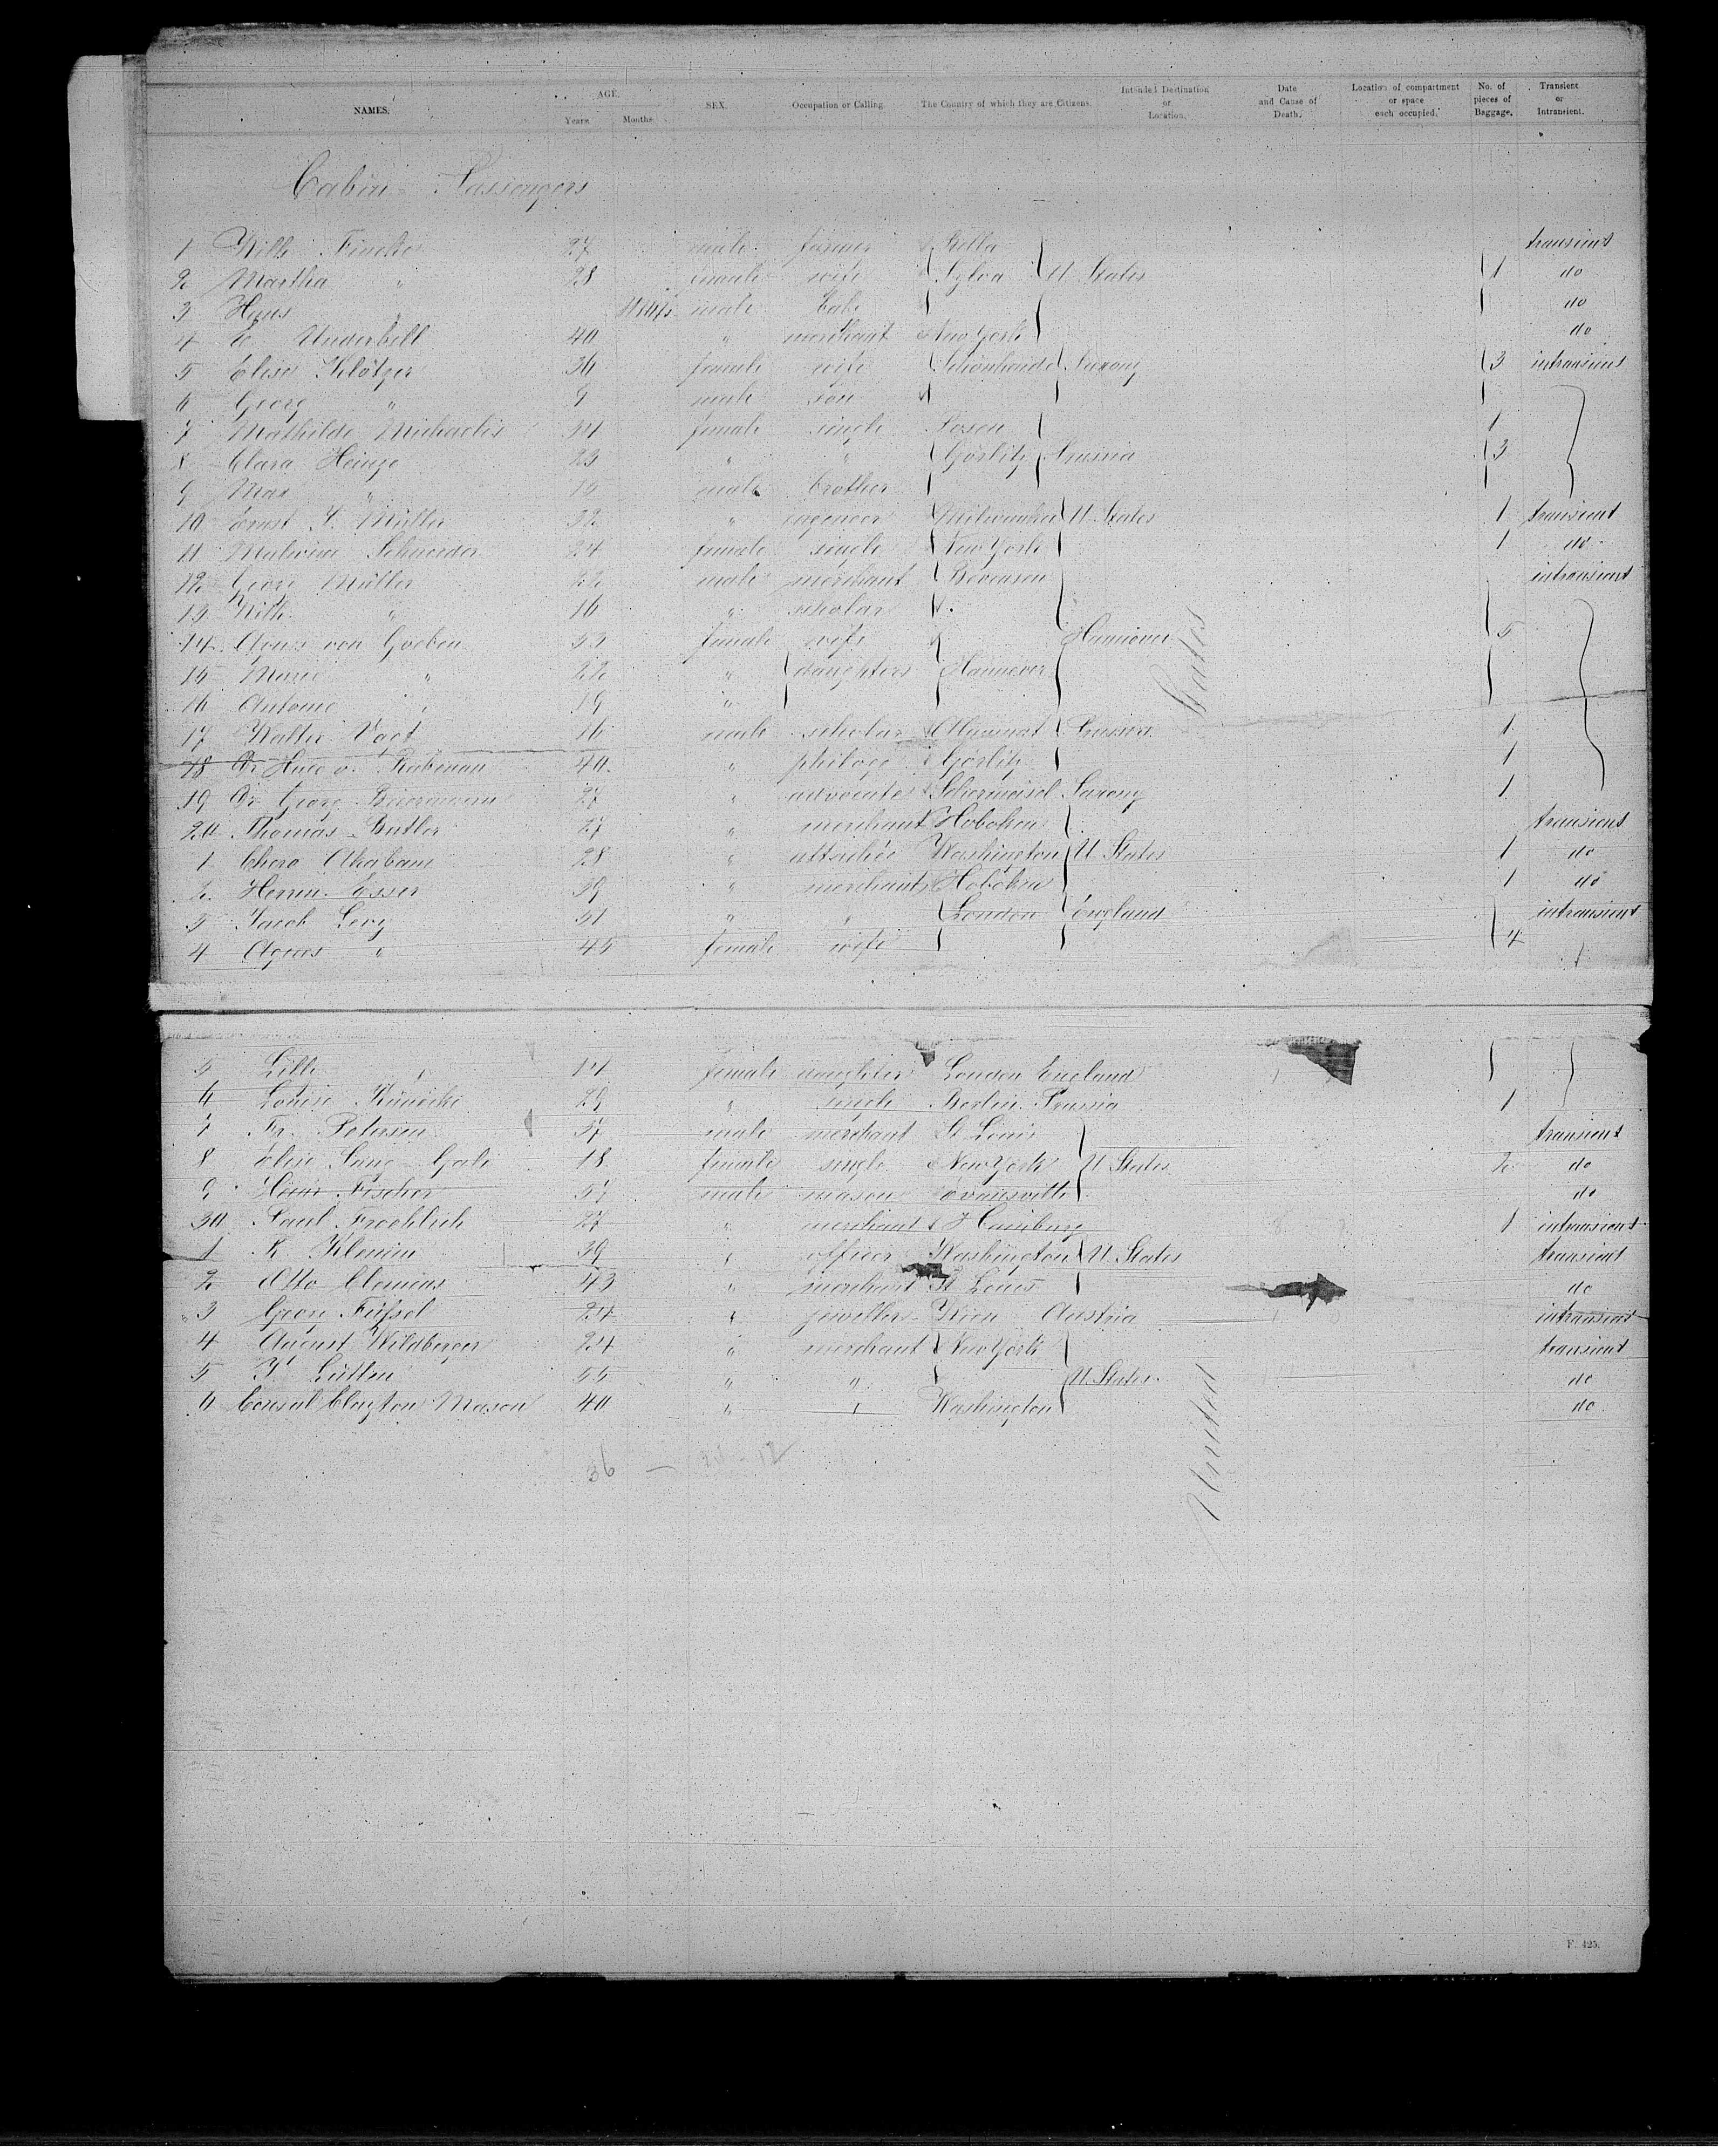 NAMES. AGE. Years Months SEX. Occupation or Calling. The Country of which they are Citizens. Intended Destination or Location. Date and Cause of Death. Location of compartment or space each occupied. No. of pieces of Baggage. Transient or Intransient.
Cabin Passengers
1 Wilh. 27 male farmer transient
2 Martha " 28 female wife Sylva U States 1 do
3 Hans " male do
4 Underhill 40 " merchant New York do
5 Elise Klötzer 36 female wife Schönheide Saxony 3 intransient
6 Georg " 9 male son
7 Mathilde Michaelis 34 female single Posen 1
8 Clara Heinze 23 " " Görlitz Prussia 3
9 Max " male brother
10 Ernst Müller 32 " Milwaukee U States 1 transient
11 Malwine Schneider 24 female single New York 1 do
12 Georg Müller 22 male merchant Bevensen intransient
13 Wilh. " 16 " scholar
14 Agnes von Goeben 53 female wife Hannover 5
15 Marie " 22 " daughters Hannover
16 Antonie " 19 "
17 Walter Vogt 16 male scholar Prussia 1
18 Dr Hugo v. Rabenau 40 " Görlitz 1
19 Dr Georg 27 " advocate Saxony 1
20 Thomas Butler 27 " merchant Hoboken transient
1 28 " attachée Washington U States 1 do
2 Herm. Esser 39 " merchant Hoboken 1 do
3 Jacob Levy 51 " " London England intransient
4 Agnes " 45 female wife 4
5 Lilli " 14 female daughter London England
6 Louise 29 " single Berlin Prussia 1
7 Fr. Petersen 37 male merchant St Louis transient
8 Elise 18 female single New York U States 2 do
9 Heinr Fischer 57 male mason Evansville do
30 Paul Froehlich 27 " merchant Hamburg 1 intransient
1 Klemm 39 " officer Washington U States transient
2 Otto Clemens 43 " merchant St Louis do
3 Georg Füssel 24 " jeweller Wien Austria intransient
4 August Wildberger 24 " merchant New York transient
5 Lütten 55 " " U States do
6 Consul Clayton Mason 40 " " Washington do
36 — 12
United States
F. 425.